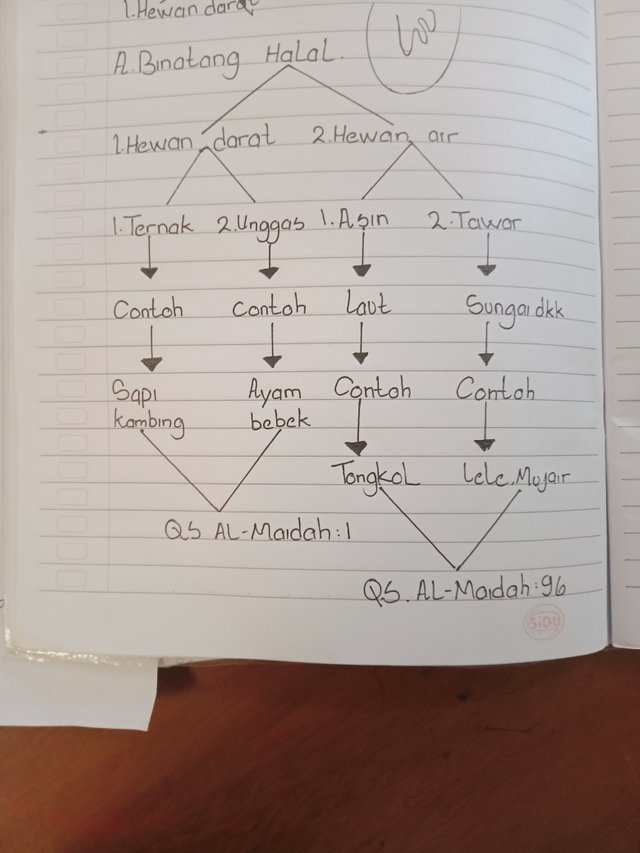 1.Hewan darat
A.Binatang Halal.
100
1.Hewan darat 2.Hewan air
1.Ternak 2.Unggas 1.Asin 2.Tawar
Contoh Contoh Laut Sungai dkk
Sapi Ayam Contoh Contoh
kambing bebek
Tongkol Lele.Mujair
QS AL-Maidah:1
QS. AL-Maidah:96
SIDU